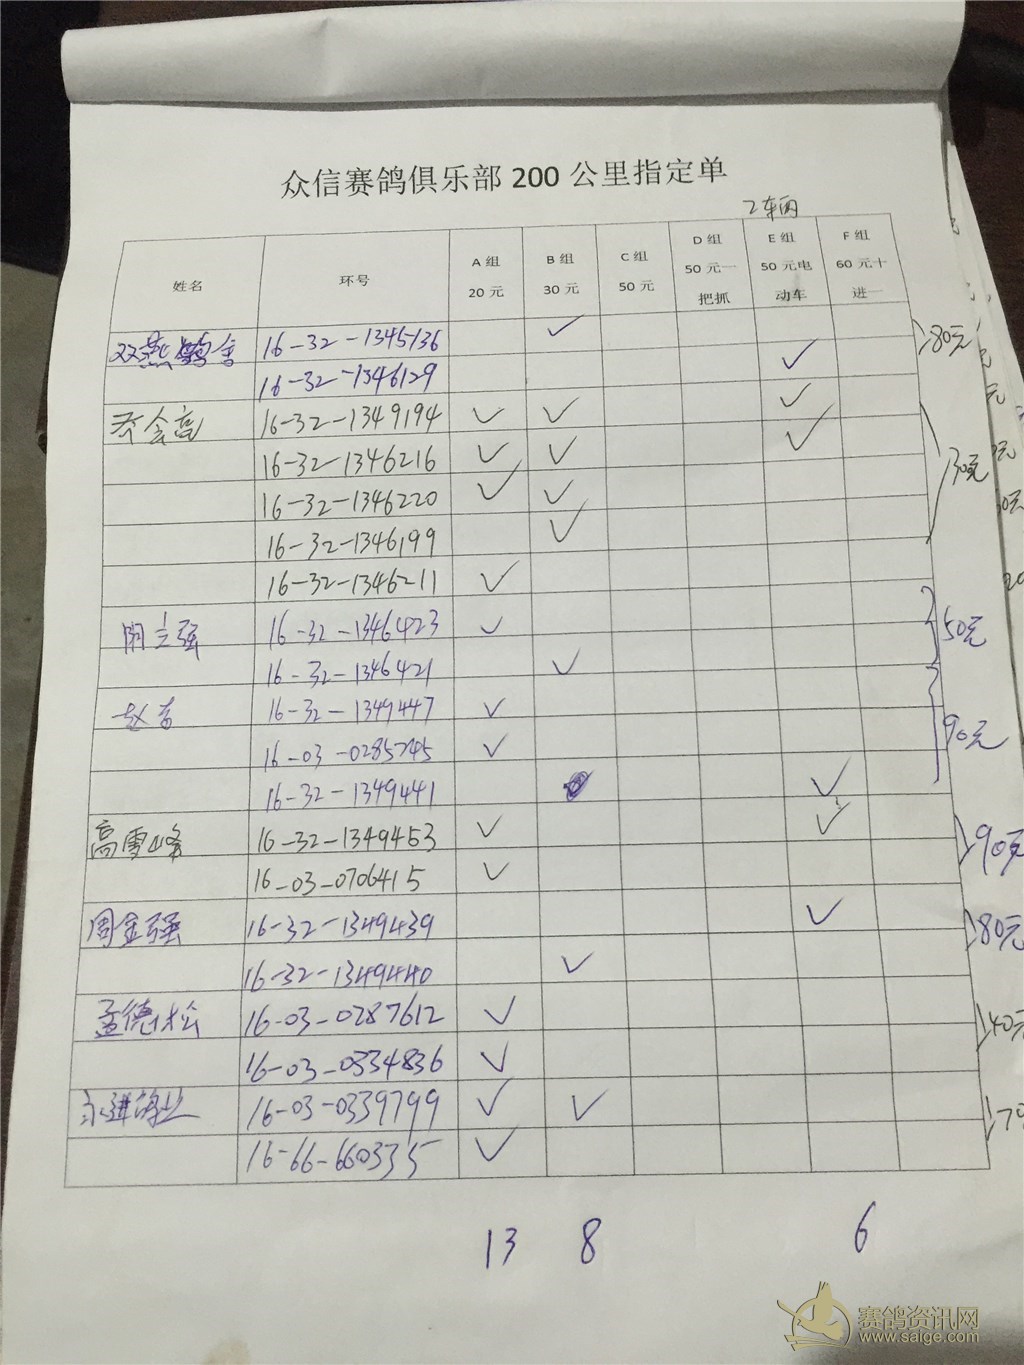 众信赛鸽俱乐部 200 公里指定单
2车两
姓名 环号 A 组 20 元 B 组 30 元 C 组 50 元 D 组 50 元一把抓 E 组 50 元电动车 F 组 60 元十进一
双燕鹤舍 16-32-1345136 ✓ 80元
16-32-1346129 ✓
16-32-1349194 ✓ ✓ ✓
16-32-1346216 ✓ ✓ ✓
16-32-1346220 ✓ ✓
16-32-1346199 ✓
16-32-1346211 ✓
16-32-1346423 ✓ 50元
16-32-1346421 ✓
16-32-1349447 ✓
16-03-0285745 ✓ 90元
16-32-1349441 ✓
高雪峰 16-32-1349453 ✓ ✓ 90元
16-03-0706415 ✓
周金强 16-32-1349439 ✓ 80元
16-32-1349440 ✓
孟德松 16-03-0287612 ✓ 40元
16-03-0334836 ✓
永进鸽业 16-03-0339799 ✓ ✓
16-66-660335 ✓
13 8 6
赛鸽资讯网
www.saige.com